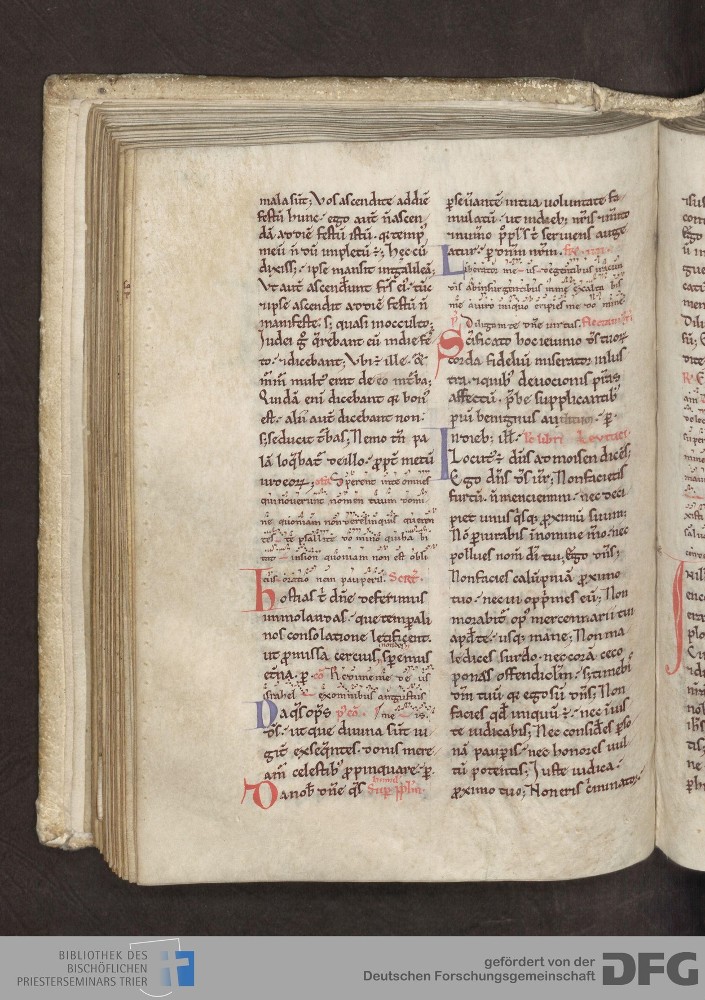 mala sūt; Vos ascendite ad diē
festū hunc · ego autē n̄ ascen
dā ad diē festū istū · q̄ temp᷒
meū n̄dū impletū ē; Hec cū
dixiss; · ipse mansit in galilea;
Ut autē ascend̄unt frs̄ ei᷒ · tūc
⁊ ipse ascendit ad diē festū n̄
manifeste · s; quasi in occulto;
Iudei g̊ q̄rebant eū in die fe
sto · ⁊ dicebant; Ubi ē ille · &
m̄m̄ mult᷒ erat de eo in t̄ba;
Quidā eni dicebant q̄ bon᷒
est · alii autē dicebant non ·
s; seducit t̄bas; Nemo tn̄ pa
lā loq̄bat̄ de illo · ꝓpt̄ metū
iudeoꝝ; Sperent in te omnes
qui noverunt nomen tuum domi
ne quoniam non derelinquis querен
tes te psallite do mino qui ha bi
tat in sion quoniam non est obli
tus oratio nem pauperū Secret·
Hostias t̄ dn̄e deferimus
immolandas · que temp̄ali
nos consolatione letificent ·
ut ꝓmissa cercius n̄ desperemus
et̄na · ꝑ · cō Redime me de us
israhel ex omnibus angustiis
Da q̄s op̄s p᷒ cō · me is·
ds̄ · ut que divina sūt iu
git̄ exseq̄ntes · donis mere
am̄ celestib᷒ ꝓpinquare · ꝑ·
Da nob̄ dn̄e q̄s Sup̄ pp̄lm̄·
ꝑsev̄antē in tua voluntate fa
mulatū · ut in dieb᷒ nr̄is ⁊ m̄ito
⁊ num̄o pp̄ls t̄ serviens auge
atur · ꝑ dn̄m nr̄m ·
Liberator me us de gentibus iracun
dis ab insurgentibus in me exalta bis
me a viro iniquo eripies me do mine
Diligam te dn̄e virtus
Sc̄ificato hoc ieiunio ds̄ tuoꝝ
corda fideliū miserator illus
tra · ⁊ quib᷒ devocionis p̄stas
affectū · p̄be supplicantib᷒
piū benignus auditum · ꝑ·
In dieb᷒ ill᷒ · Lc̄ libri Levitici·
Locut᷒ ē dn̄s ad moisen dicēs;
Ego dn̄s ds̄ vr̄; Non facietis
furtū · n̄ menciemini · nec deci
piet unusq̄sq; ꝓximū suum;
Nō ꝑiurabis in nomine m̄o · nec
pollues nom̄ di tui; Ego dn̄s;
Non facies calūpniā ꝓximo
tuo · nec vi opp̄mes eū; Non
morabit̄ op᷒ mercennarii tui
apd̄ te · usq; mane; Non ma
ledices surdo · nec corā ceco
ponas offendiclm̄ · s; timebi᷒
dn̄m tuū · q̄ ego sū dn̄s; Non
facies qd̄ iniquū ē · nec iuis
te iudicabis; Nec consid̄es ꝑso
nā paup̄is · nec honores vul
tū potentis; Iuste iudica·
ꝓximo tuo; Non eris c̄minator
BIBLIOTHEK DES
BISCHÖFLICHEN
PRIESTERSEMINARS TRIER
gefördert von der
Deutschen Forschungsgemeinschaft
DFG